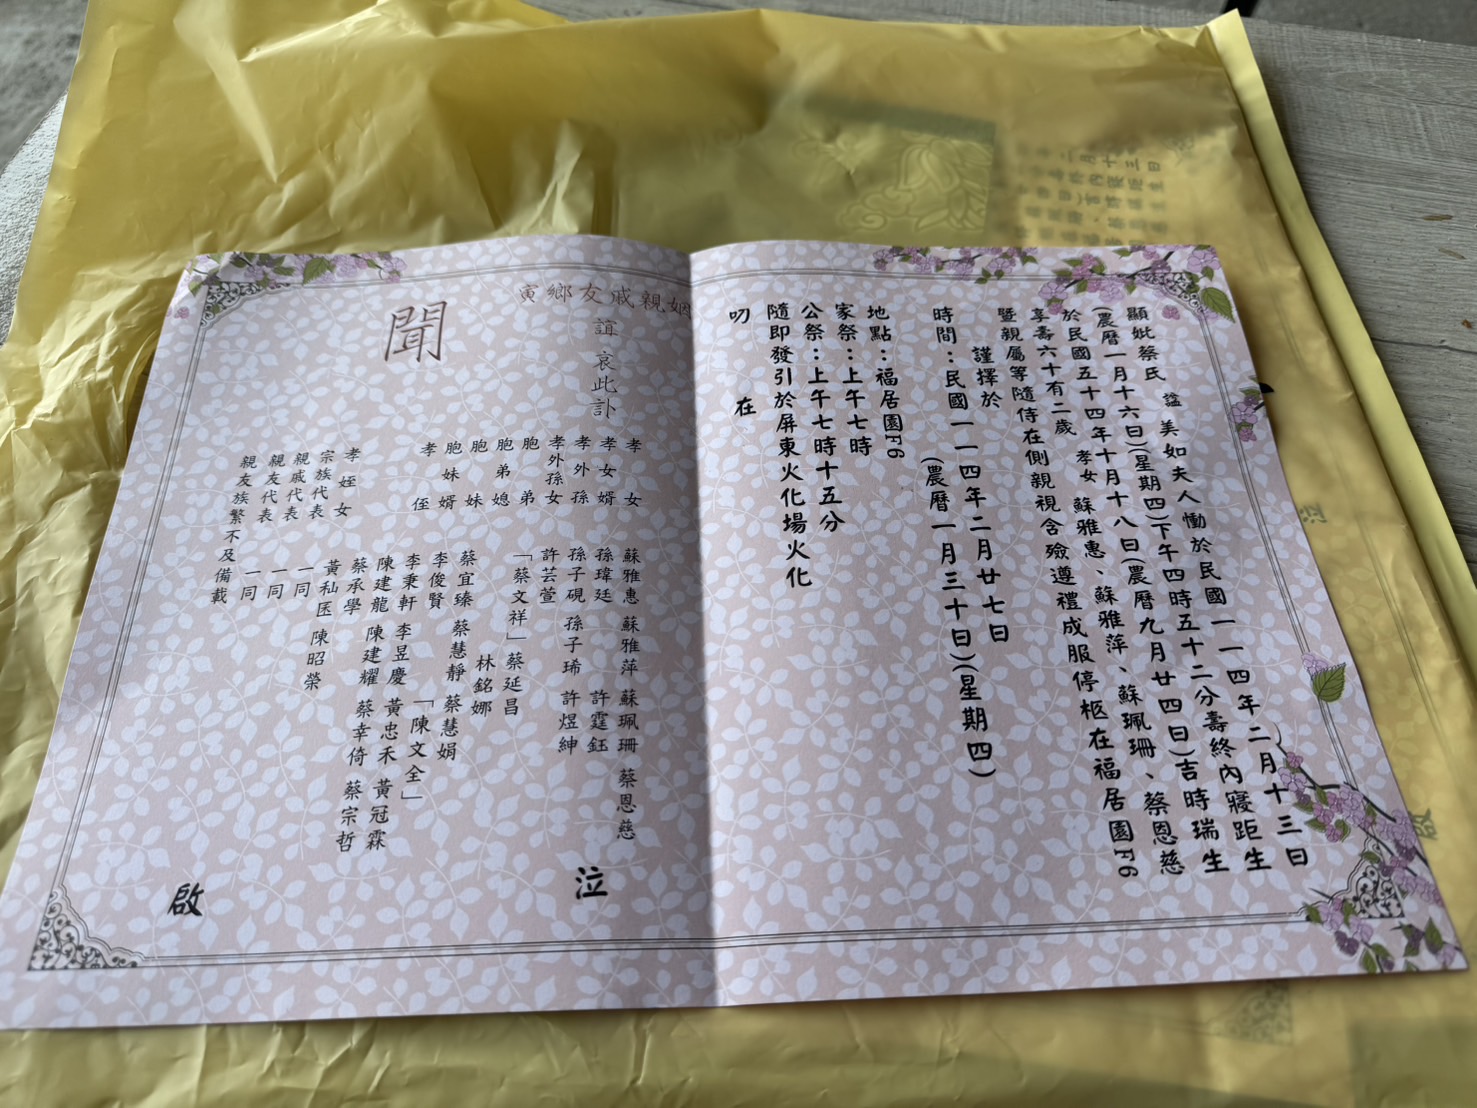 顯妣蔡氏 諡 美如夫人慟於民國一一四年二月十三日
(農曆一月十六日)(星期四)下午四時五十二分壽終內寢距生
於民國五十四年十月十八日(農曆九月廿四日)吉時瑞生
享壽六十有二歲 孝女 蘇雅惠、蘇雅萍、蘇珮珊、蔡恩慈
暨親屬等隨侍在側親視含殮遵禮成服停柩在福居園F6
謹擇於
時間:民國一一四年二月廿七日
(農曆一月三十日)(星期四)
地點:福居園F6
家祭:上午七時
公祭:上午七時十五分
隨即發引於屏東火化場火化
叨 在
姻親戚友鄉寅
誼 哀此訃
聞
孝女 蘇雅惠 蘇雅萍 蘇珮珊 蔡恩慈
孝女婿 孫瑋廷 許霆鈺
孝外孫 孫子硯 孫子琋 許煜紳
孝外孫女 許芸萱
胞弟 「蔡文祥」 蔡延昌
胞弟媳 林銘娜
胞妹 蔡宜臻 蔡慧靜 蔡慧娟
胞妹婿 李俊賢 「陳文全」
孝侄 李秉軒 李昱慶 黃忠禾 黃冠霖
陳建龍 陳建耀 蔡幸倚 蔡宗哲
蔡承學
孝姪女 黃私匧 陳昭榮
宗族代表 一同
親戚代表 一同
親友代表 一同
親友族繁不及備載
泣
啟